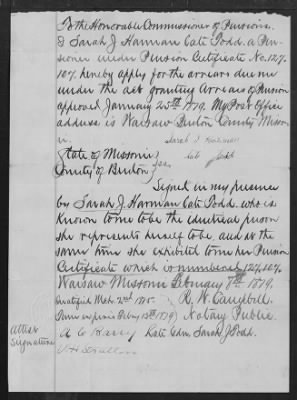 To the Honorable Commissioner of Pensions.
I Sarah J Harman late Todd. a Pen-
sioner under Pension Certificate No. 127.
107. hereby apply for the arrears due me
under the act granting Arrears of Pension
approved January 25th 1879. My Post Office
address is Warsaw Benton County Missou-
ri.
Sarah J Harman
late Todd
State of Missouri
County of Benton } SS.
Signed in my presence
by Sarah J. Harman late Todd. who is
known to me to be the identical person
she represents herself to be, and at the
same time she exhibited to me her Pension
Certificate which is numbered 127.107.
Warsaw Missouri February 8th 1879.
R. W. Campbell.
Notary Public.
Attest
Signature
Late Adm. Sarah J Todd.